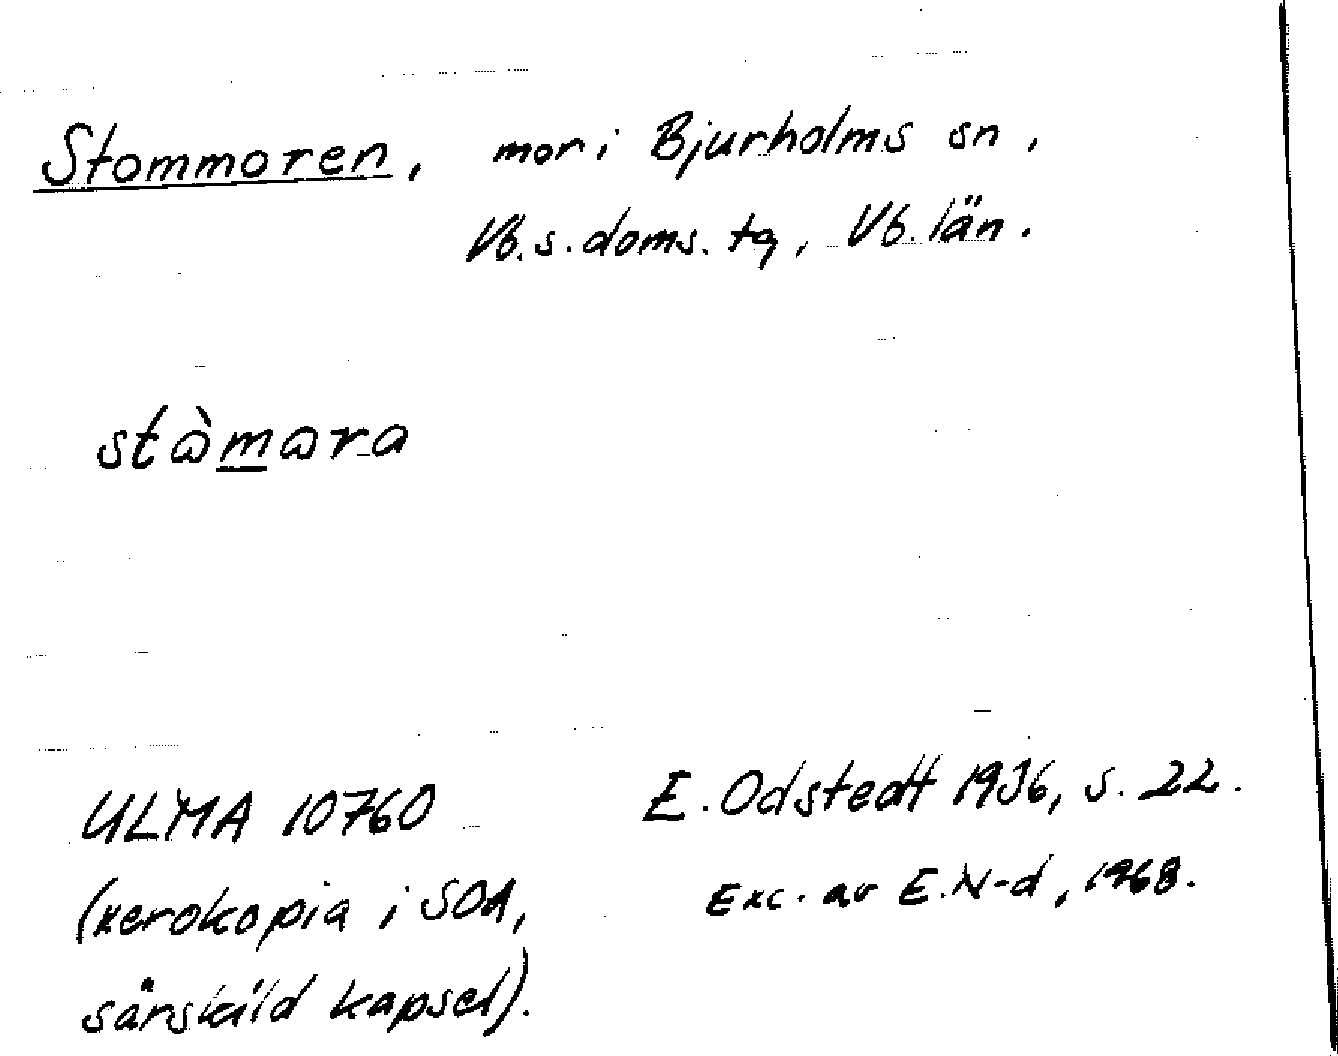 Stommoren, mor i Bjurholms sn,
Vb.s.doms.tg, Vb.län.
stɷ̀mɷra
ULMA 10760
(xerokopia i SOA,
särskild kapsel).
E. Odstedt 1936, s. 22.
Exc. av E.N-d, 1968.